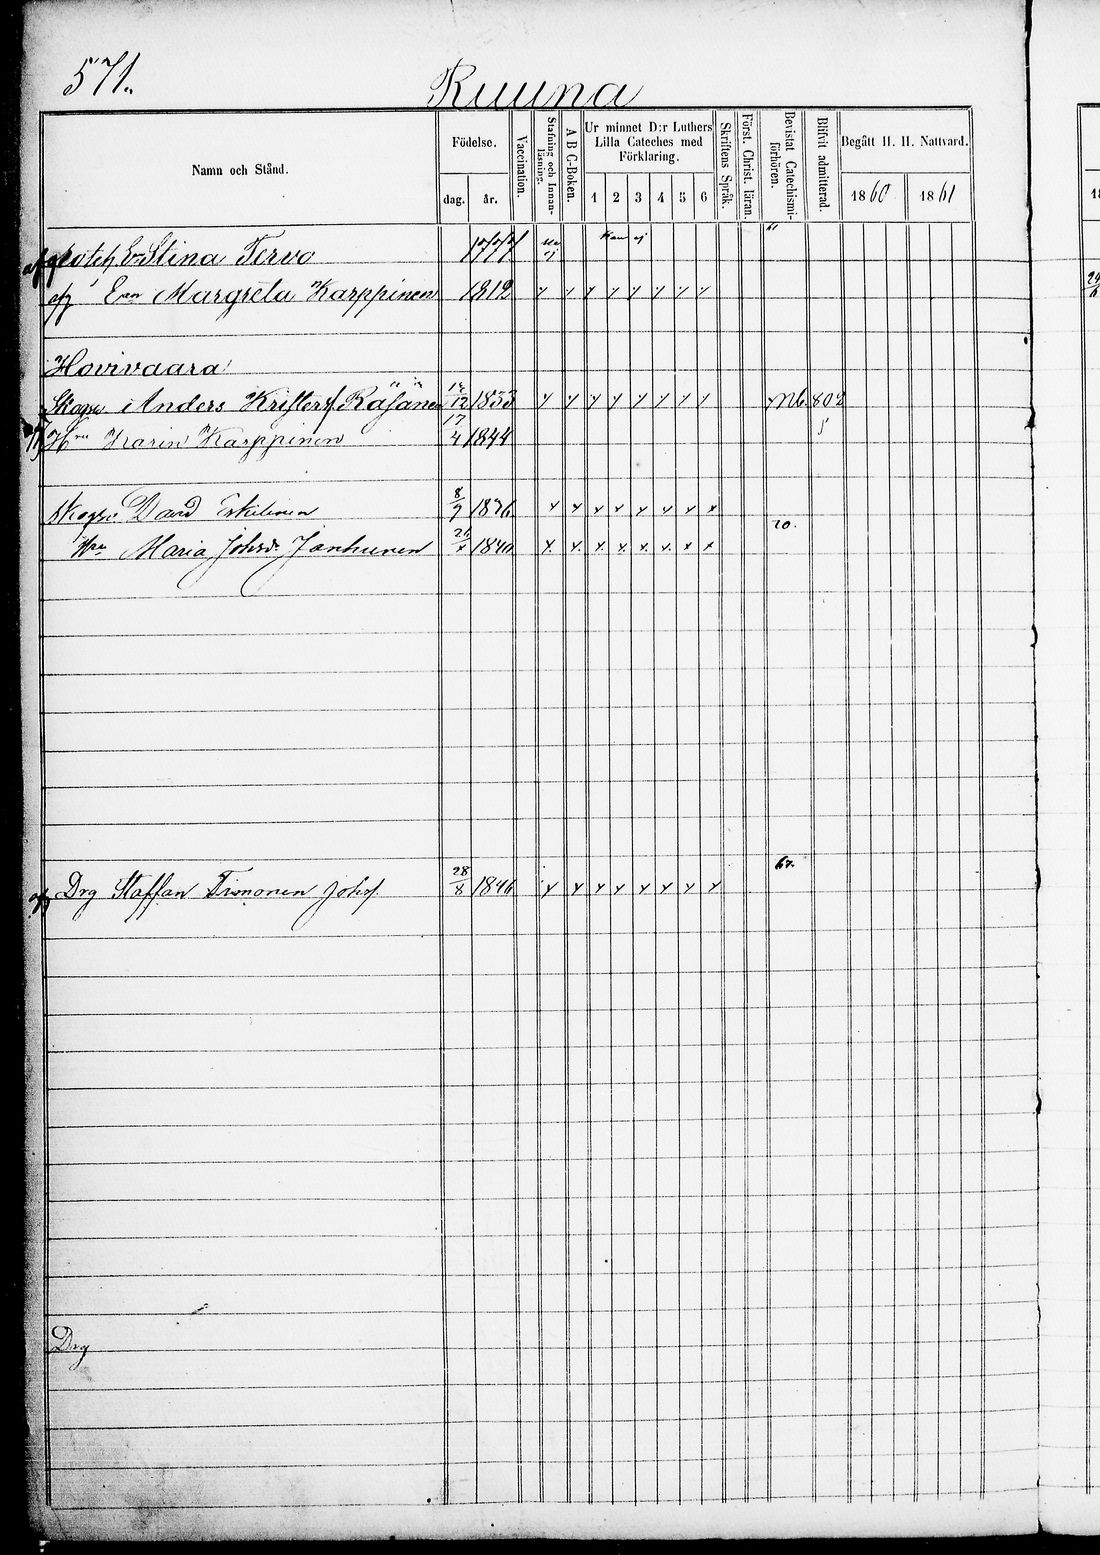 571.
Ruuna
Namn och Stånd.
Födelse.
dag.
år.
Vaccination.
Stafning och Innan-läsning.
A B C-Boken.
Ur minnet D:r Luthers Lilla Cateches med Förklaring.
1 2 3 4 5 6
Skriftens Språk.
Först. Christ. läran.
Bevistat Catechismi-förhören.
Blifvit admitterad.
Begått H. H. Nattvard.
1860 1861
Stina Tervo 1777 kan ej 61
afg Margreta Karppinen 1812 x x x x x x x x
Hovivaara
Anders Kristerss. Räsänen 12 1833 x x x x x x x x Nb. 802
Hru Karin Karppinen 17/4 1844
Skogv. David Eskelinen 8/9 1836 x x x x x x x x
Hru Maria Johsd. Janhunen 1840 x x x x x x x x 20.
afg Drg Staffan Timonen Johss. 28/8 1846 x x x x x x x x 67.
Drg